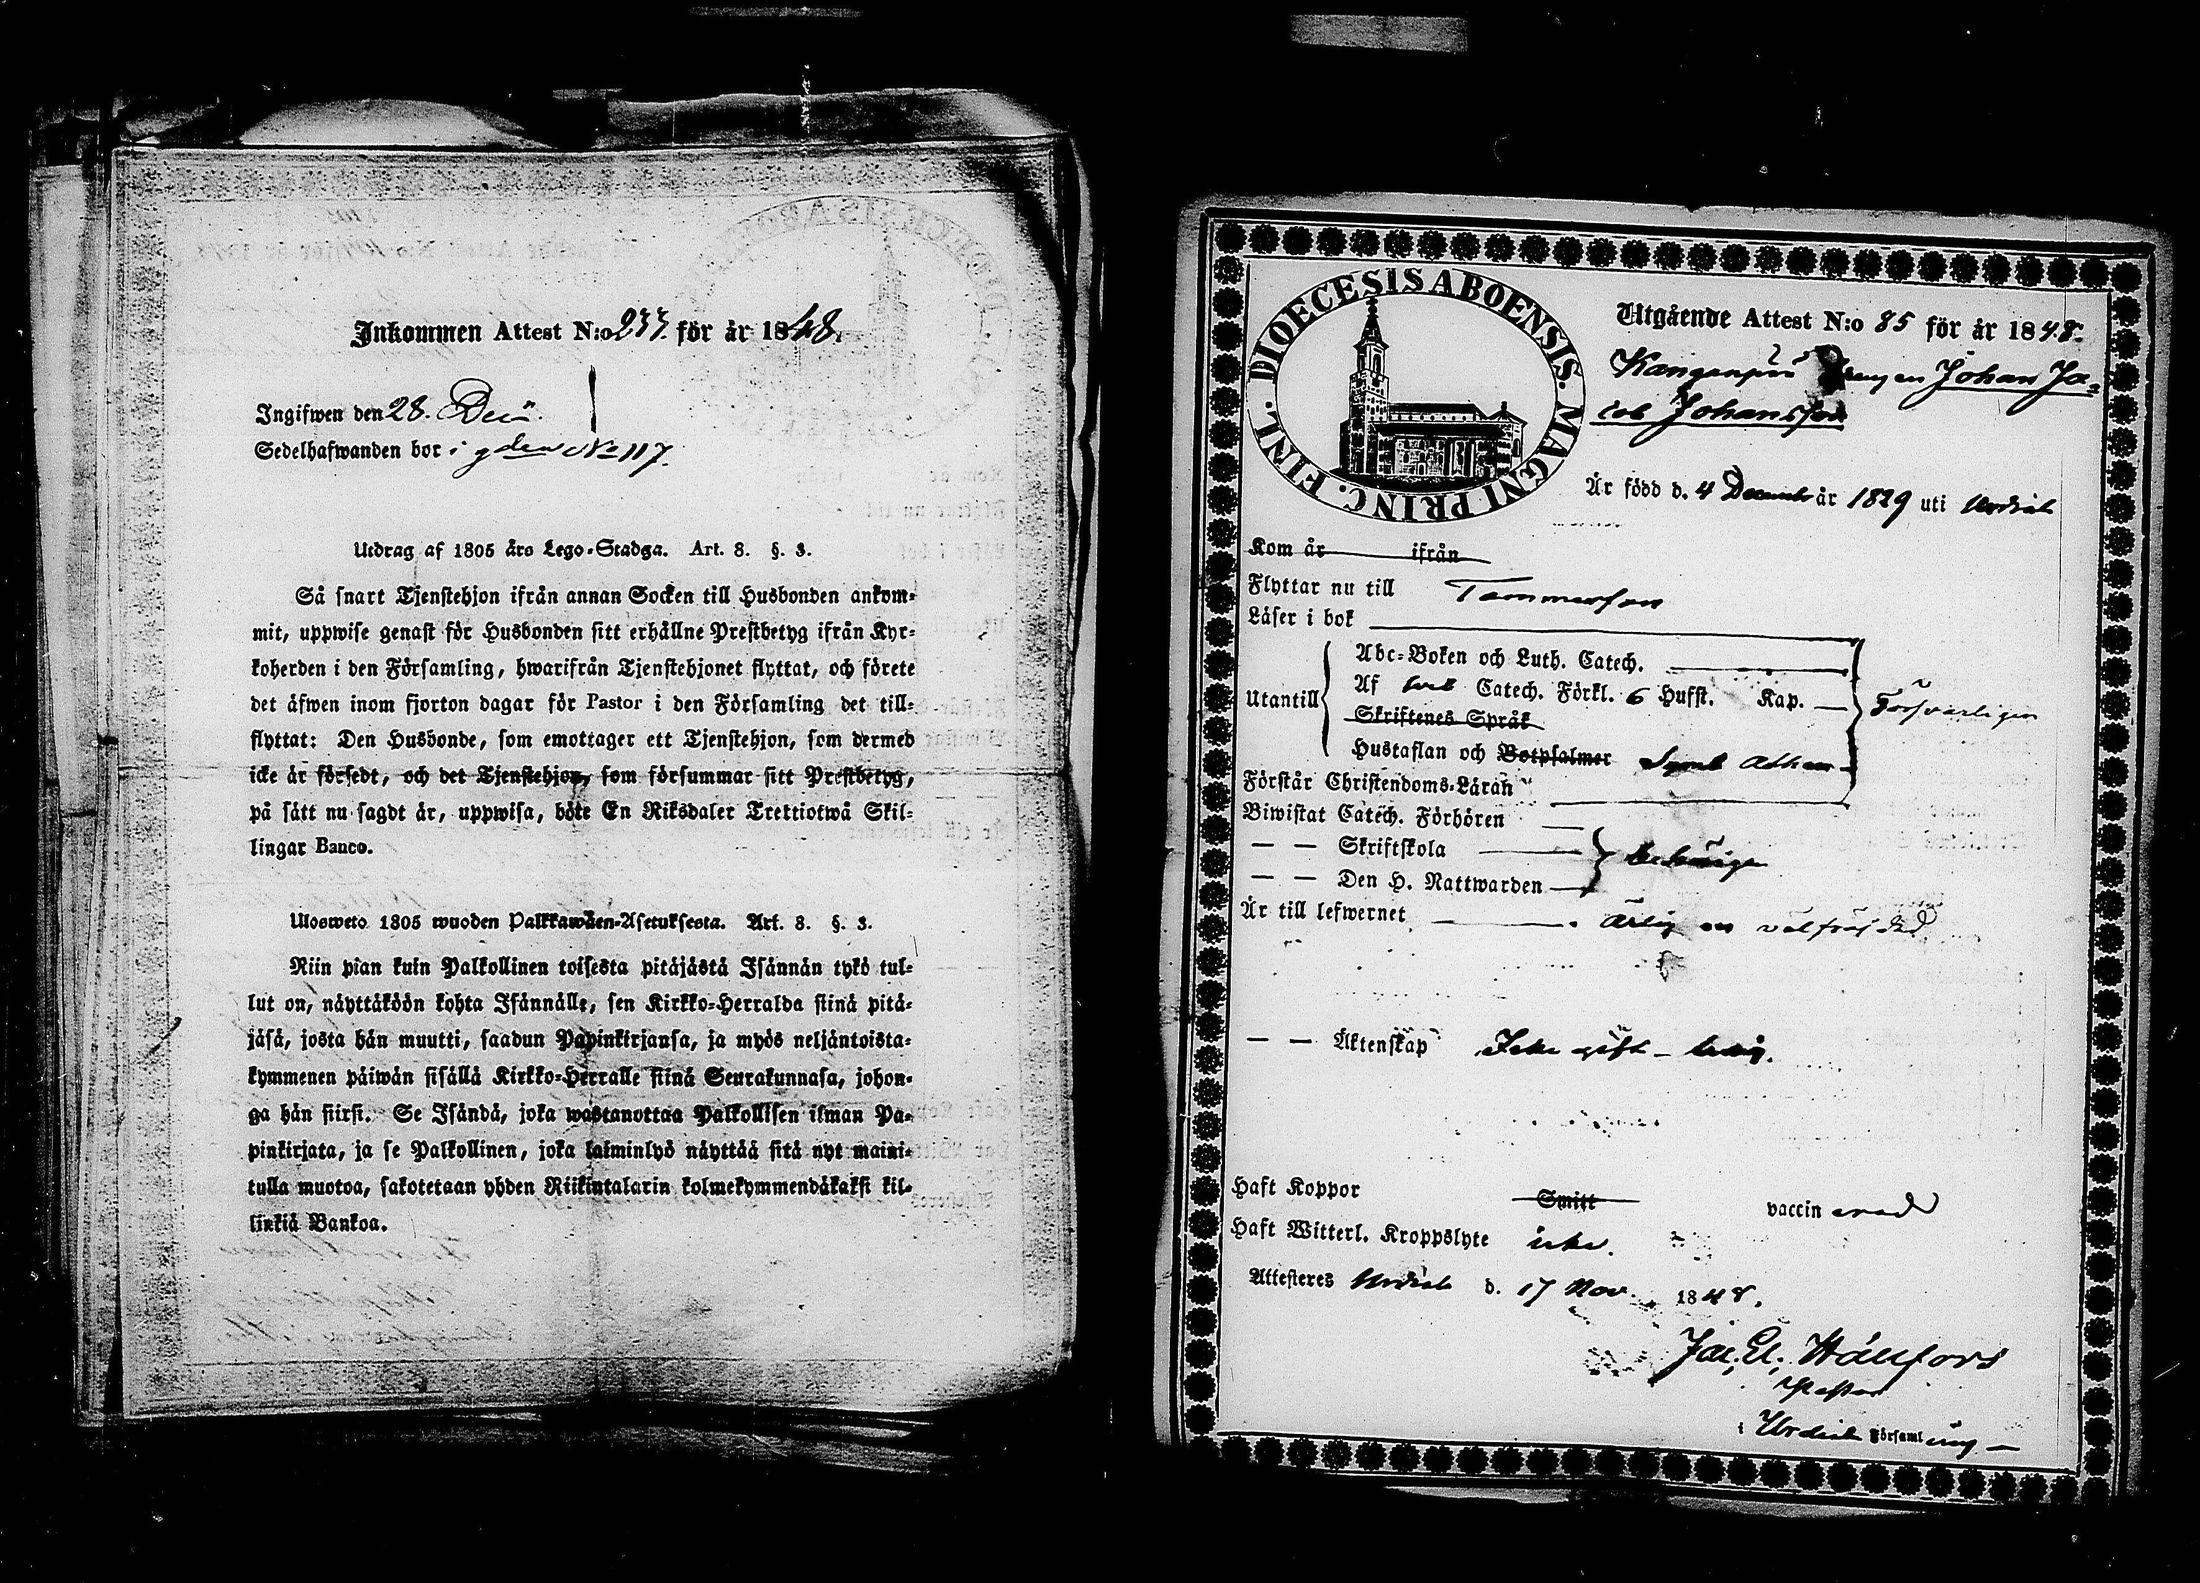 Inkommen Attest N:o 233. för år 1848.
Ingifwen den 28. Decbr.
Sedelhafwanden bor i gden No 117.
Utdrag af 1805 års Lego-Stadga. Art. 8. §. 3.
Så snart Tjenstehjon ifrån annan Socken till Husbonden ankom-
mit, uppwise genast för Husbonden sitt erhållne Prestbetyg ifrån Kyr-
koherden i den Församling, hwarifrån Tjenstehjonet flyttat, och förete
det äfwen inom fjorton dagar för Pastor i den Församling det till-
flyttat: Den Husbonde, som emottager ett Tjenstehjon, som dermed
icke är försedt, och det Tjenstehjon, som försummar sitt Prestbetyg,
på sätt nu sagdt är, uppwisa, böte En Riksdaler Trettiotwå Skil-
lingar Banco.
Ulosweto 1805 wuoden Palkkawäen-Asetuksesta. Art. 8. §. 3.
Niin pian kuin Palkollinen toisesta pitäjästä Isännän tykö tul-
lut on, näyttäköön kohta Isännälle, sen Kirkko-Herralda siinä pitä-
jäsä, josta hän muutti, saadun Papinkirjansa, ja myös neljäntoista-
kymmenen päiwän sisällä Kirkko-Herralle siinä Seurakunnasa, johon-
ga hän siirsi. Se Isändä, joka wastanottaa Palkollisen ilman Pa-
pinkirjata, ja se Palkollinen, joka laiminlyö näyttää sitä nyt maini-
tulla muotoa, sakotetaan yhden Riikintalarin kolmekymmendäkaksi kil-
linkiä Bankoa.
DIOECESIS ABOENSIS. MAGNI PRINC. FINL.
Utgående Attest N:o 85 för år 1848.
Drengen Johan Ja-
cob Johansson
Är född d. 4 December år 1829 uti Urdiala
Kom år ifrån
Flyttar nu till Tammerfors
Läser i bok
Utantill
Abc-Boken och Luth. Catech.
Af Catech. Förkl. 6 Hufst. Kap. Försvarligen
Skriftenes Språk
Hustaflan och Botpsalmer Symb Athan
Förstår Christendoms-Läran
Biwistat Catech. Förhören
— — Skriftskola behörigen
— — Den H. Nattwarden
Är till lefwernet ärlig och välfräjdad
— — Äktenskap Icke gift – ledig.
Haft Koppor Smitt vaccinerad
Haft Witterl. Kroppslyte icke.
Attesteres Urdiala d. 17 Nov. 1848.
Jac. El. Hällfors
Pastor
i Urdiala Församling